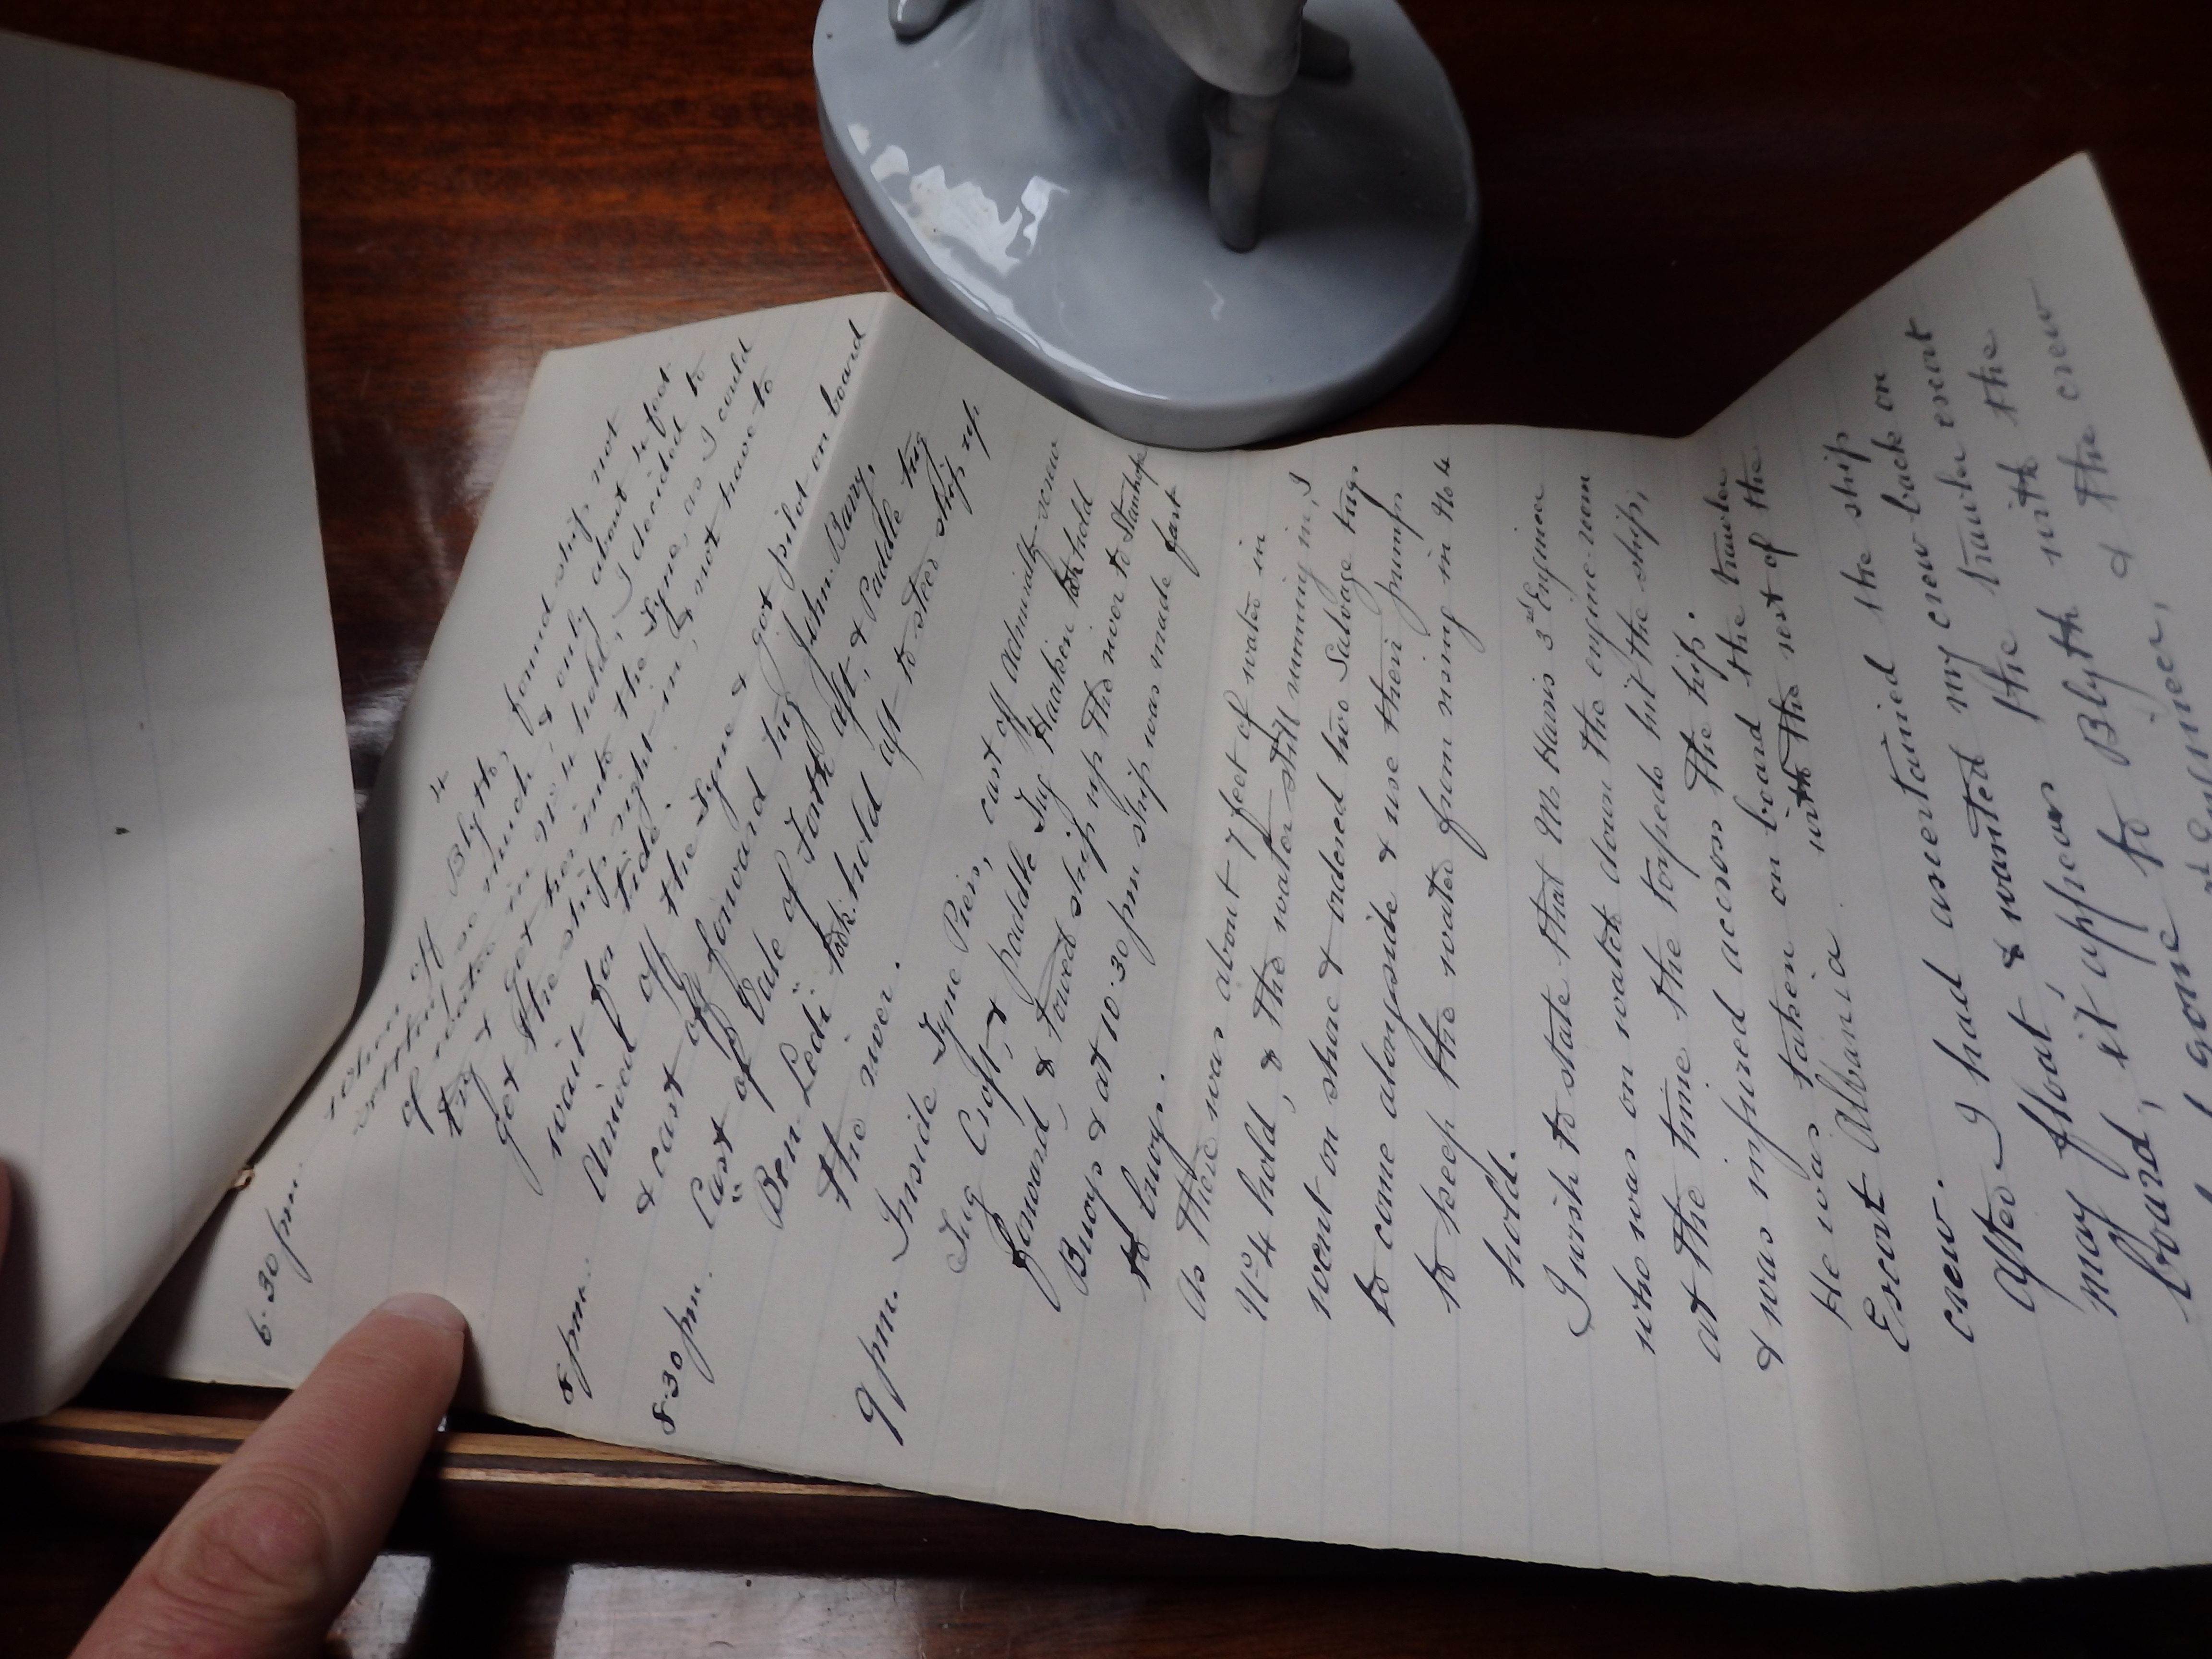 4
6.30 pm. When off Blyth, found ship not
settling so much, & only about 12 feet
of water in No 4 hold, I decided to
try & get her into the Tyne, as I could
get the ship right in, & not have to
wait for tide.
8 pm. Arrived off the Tyne & got pilot on board
& cast off forward tug John Barry,
8.30 pm. Cast off Vale of Forth aft, & Paddle tug
"Ben Ledi" took hold aft to steer ship up
the river.
9 pm. Inside Tyne Piers, cast off Admiralty screw
Tug Croft, & paddle Tug Haaken took hold
forward, & towed ship up the river to Stanhope
Buoys & at 10.30 pm ship was made fast
to buoy.
As there was about 7 feet of water in
No 4 hold, & the water still running in, I
went on shore & ordered two Salvage tugs
to come alongside & use their pumps
to keep the water from rising in No 4
hold.
I wish to state that Mr Harris 3rd Engineer
who was on watch down the engine-room
at the time the torpedo hit the ship,
& was injured across the hip.
He was taken on board the trawler
Escort Albania with the rest of the
crew.
After I had ascertained the ship
may float, & wanted my crew back on
board, it appears the trawler escort
had gone to Blyth with the
Engineer, & the crew